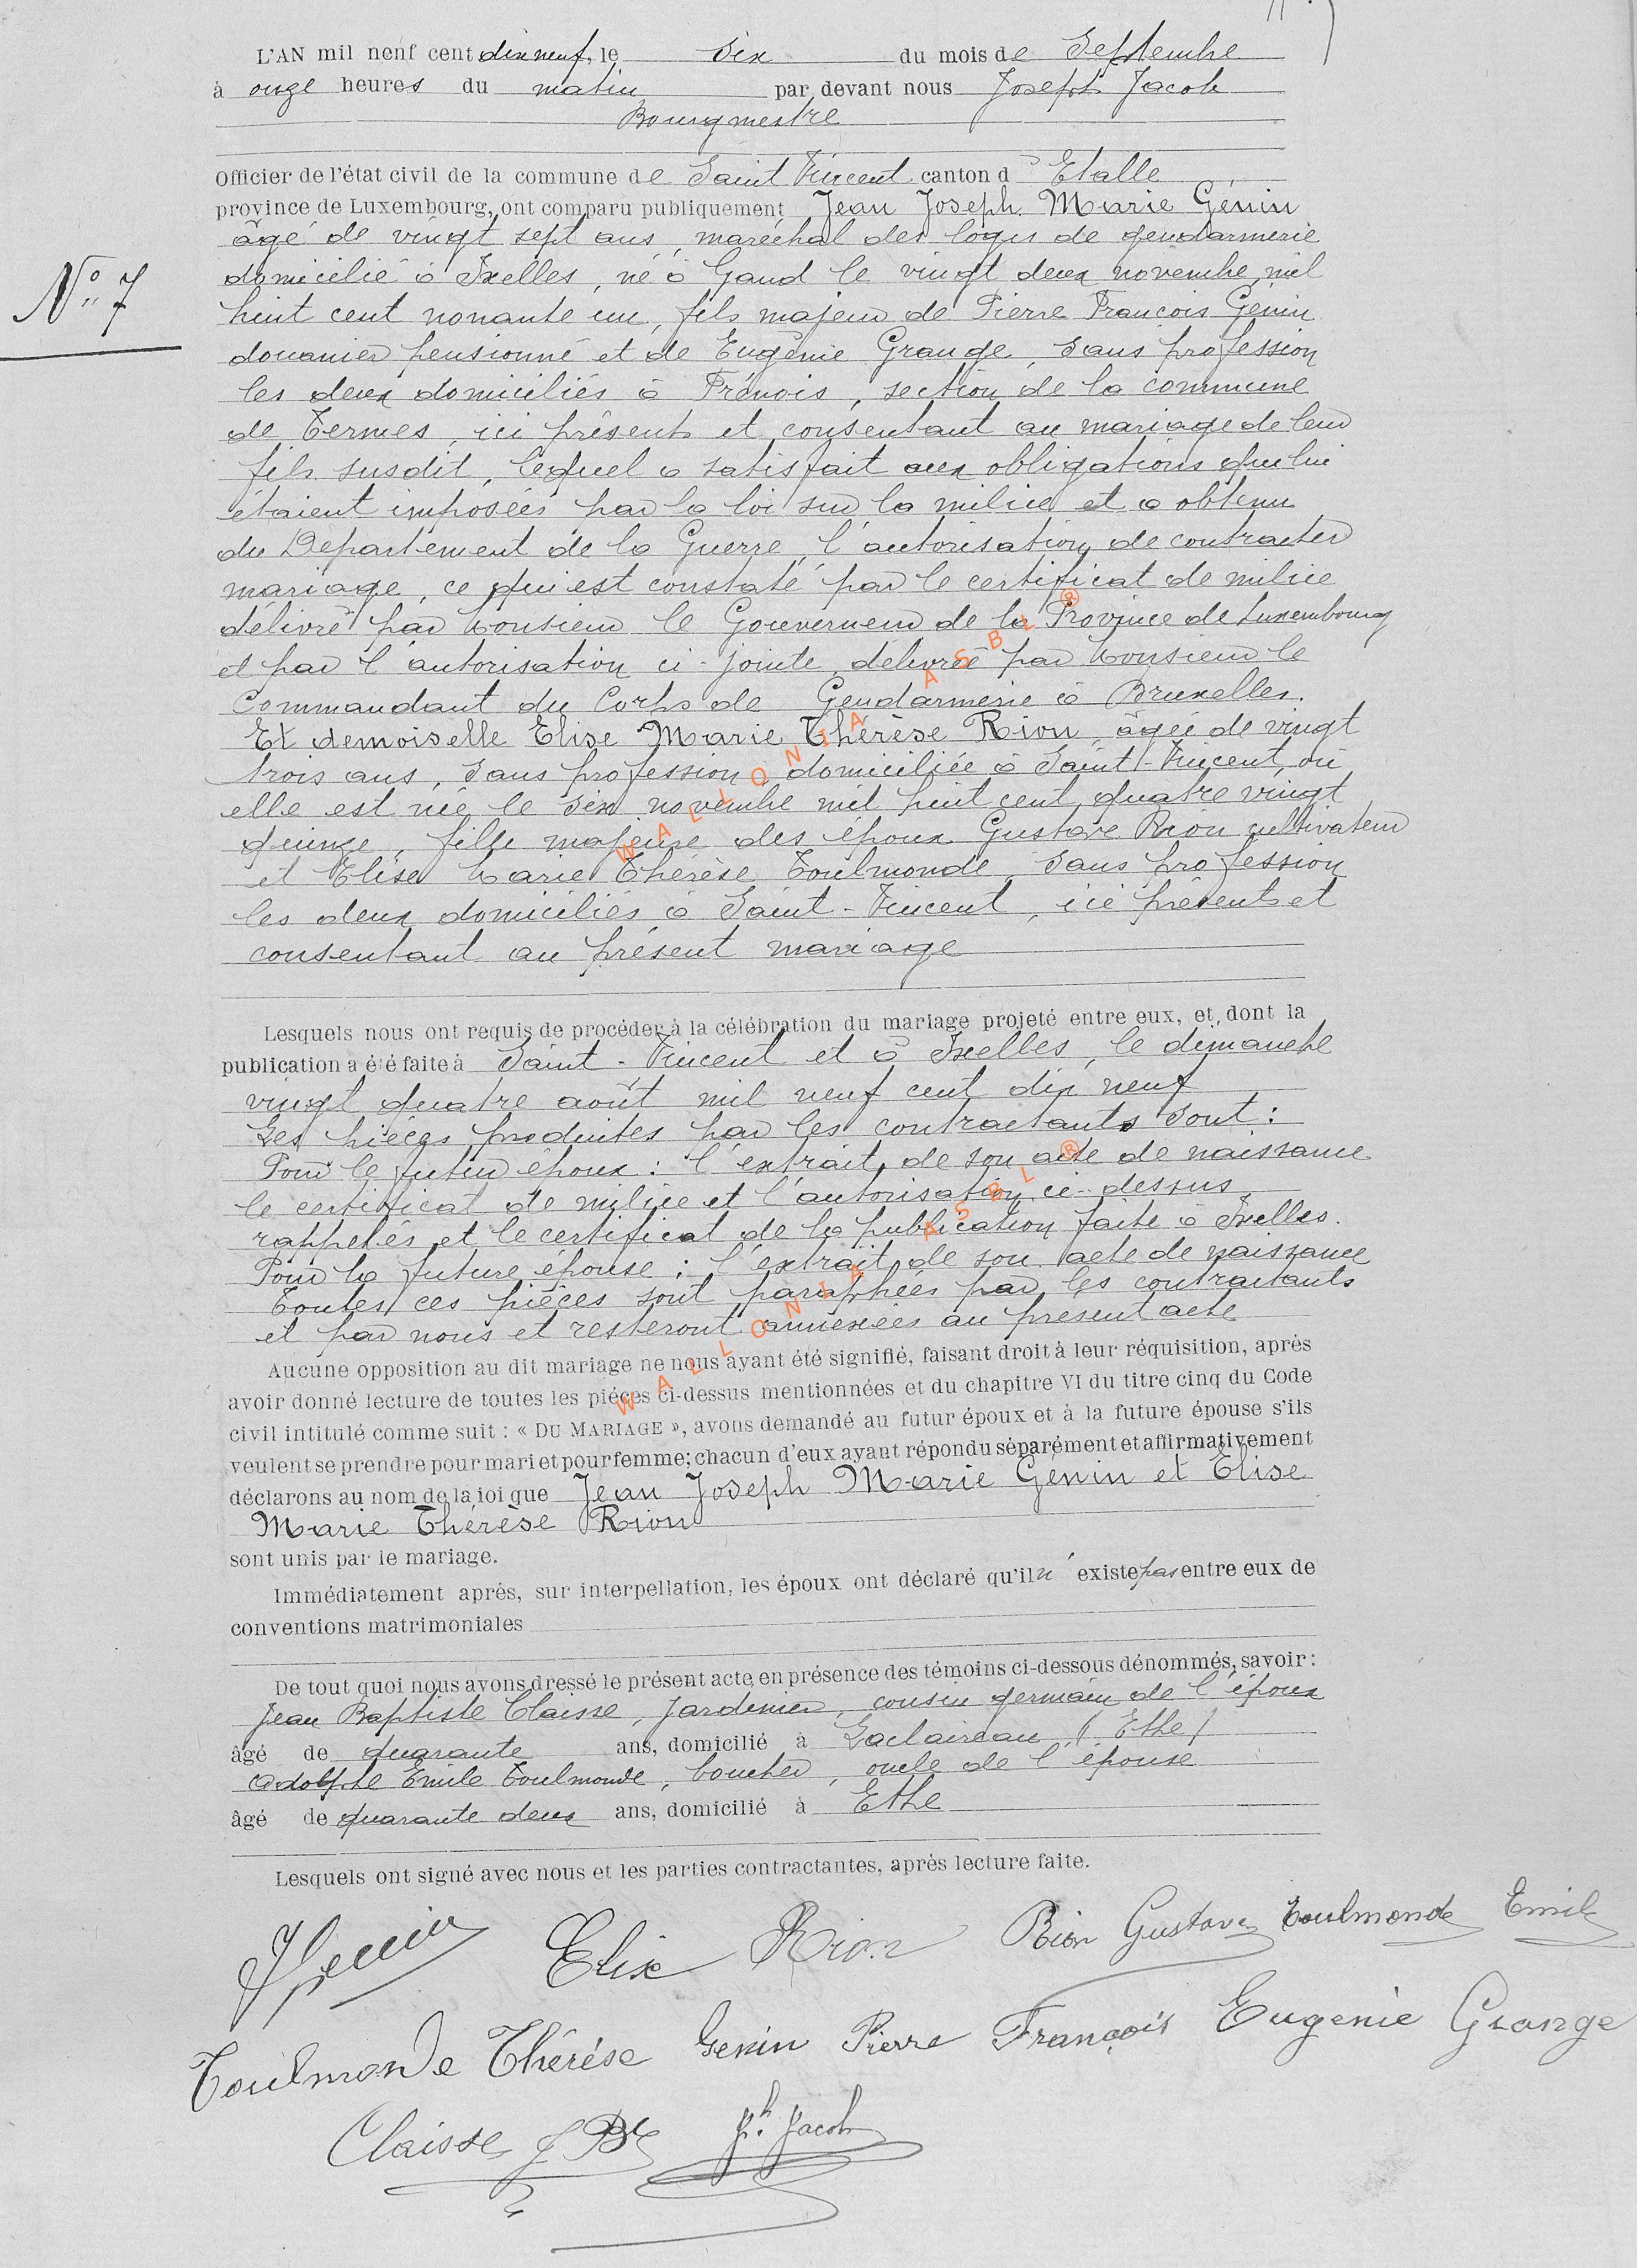 L'AN mil neuf cent dix neuf, le six du mois de Septembre
à onze heures du matin par devant nous Joseph Jacob
Bourgmestre
Officier de l'état civil de la commune de Saint Vincent canton d'Etalle
province de Luxembourg, ont comparu publiquement Jean Joseph Marie Génin
âgé de vingt sept ans, maréchal des logis de gendarmerie
N° 7
domicilié à Ixelles, né à Gand le vingt deux novembre mil
huit cent nonante un, fils majeur de Pierre François Génin
douanier pensionné et de Eugénie Grange, sans profession
les deux domiciliés à Frénois, section de la commune
de Termes, ici présents et consentant au mariage de leur
fils susdit, lequel a satisfait aux obligations qui lui
étaient imposées par la loi sur la milice et a obtenu
du Département de la Guerre, l'autorisation de contracter
mariage, ce qui est constaté par le certificat de milice
délivré par Monsieur le Gouverneur de la Province de Luxembourg
et par l'autorisation ci-jointe délivrée par Monsieur le
Commandant du Corps de Gendarmerie à Bruxelles.
Et demoiselle Elise Marie Thérèse Rion, âgée de vingt
trois ans, sans profession domiciliée à Saint-Vincent, où
elle est née le six novembre mil huit cent quatre vingt
quinze, fille majeure des époux Gustave Rion cultivateur
et Elise Marie Thérèse Toulmonde, sans profession
les deux domiciliés à Saint-Vincent, ici présents et
consentant au présent mariage
WALLONIA ASBL ®
Lesquels nous ont requis de procéder à la célébration du mariage projeté entre eux, et dont la
publication a été faite à Saint-Vincent et à Ixelles, le dimanche
vingt quatre août mil neuf cent dix neuf
Les pièces produites par les contractants sont :
Pour le futur époux : l'extrait de son acte de naissance
le certificat de milice et l'autorisation ci-dessus
rappelés et le certificat de la publication faite à Ixelles.
Pour la future épouse : l'extrait de son acte de naissance
Toutes ces pièces sont paraphées par les contractants
et par nous et resteront annexées au présent acte
WALLONIA ASBL ®
Aucune opposition au dit mariage ne nous ayant été signifié, faisant droit à leur réquisition, après
avoir donné lecture de toutes les pièces ci-dessus mentionnées et du chapitre VI du titre cinq du Code
civil intitulé comme suit : « DU MARIAGE », avons demandé au futur époux et à la future épouse s'ils
veulent se prendre pour mari et pour femme; chacun d'eux ayant répondu séparément et affirmativement
déclarons au nom de la loi que Jean Joseph Marie Génin et Elise
Marie Thérèse Rion
sont unis par le mariage.
Immédiatement après, sur interpellation, les époux ont déclaré qu'il n'existe pas entre eux de
conventions matrimoniales
De tout quoi nous avons dressé le présent acte en présence des témoins ci-dessous dénommés, savoir :
Jean Baptiste Claisse, jardinier, cousin germain de l'époux
âgé de quarante ans, domicilié à Laclaireau (Ethe)
Adolphe Emile Toulmonde, boucher, oncle de l'épouse
âgé de quarante deux ans, domicilié à Ethe
Lesquels ont signé avec nous et les parties contractantes, après lecture faite.
JGenin Elise Rion Rion Gustave Toulmonde Emile
Toulmonde Thérèse Genin Pierre François Eugenie Grange
Claisse J Bte Jh. Jacob